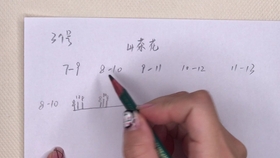 山茶花
7-9 8-10 9-11 10-12 11-13
8-10